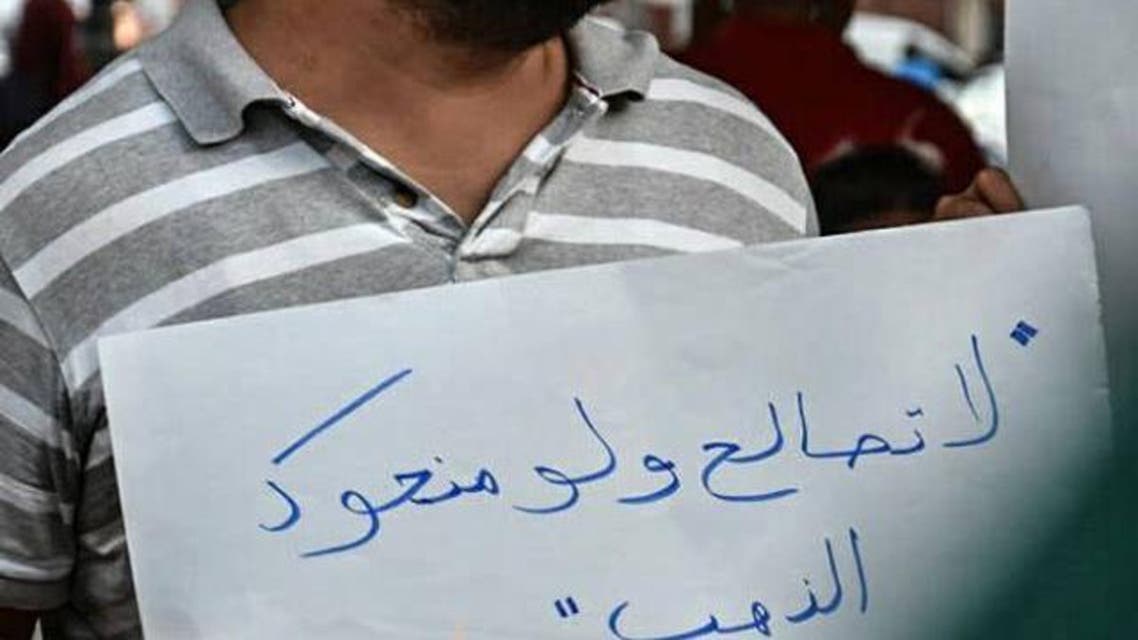 "لا تصالح ولو منحوك
الذهب"